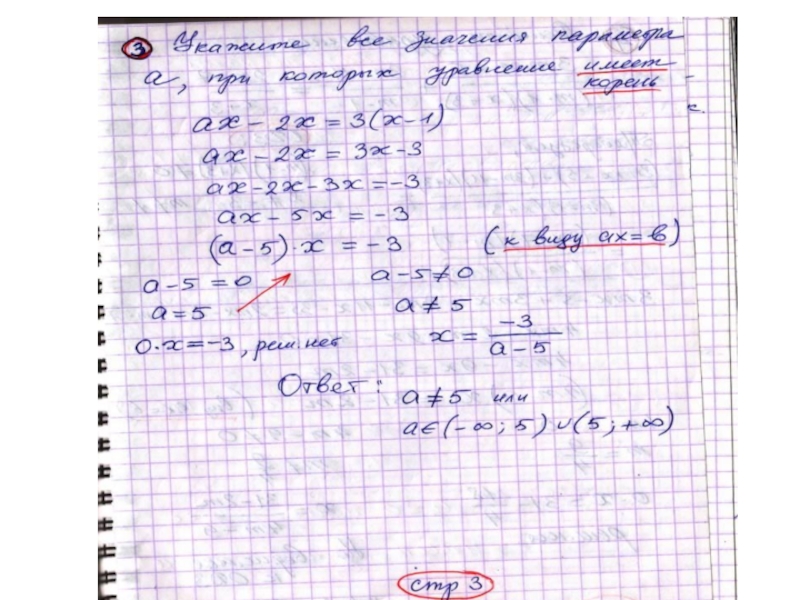 3 Укажите все значения параметра
а, при которых уравнение имеет
корень -
с.
ax - 2x = 3(x-1)
ax - 2x = 3x-3
ax-2x-3x = -3
ax - 5x = -3
(a-5)·x = -3 (к виду ax=в)
a-5 = 0 a-5≠0
a=5 a ≠ 5
0·x=-3, реш. нет x = -3/(a-5)
Ответ: a≠5 или
a∈(-∞; 5)∪(5; +∞)
стр 3